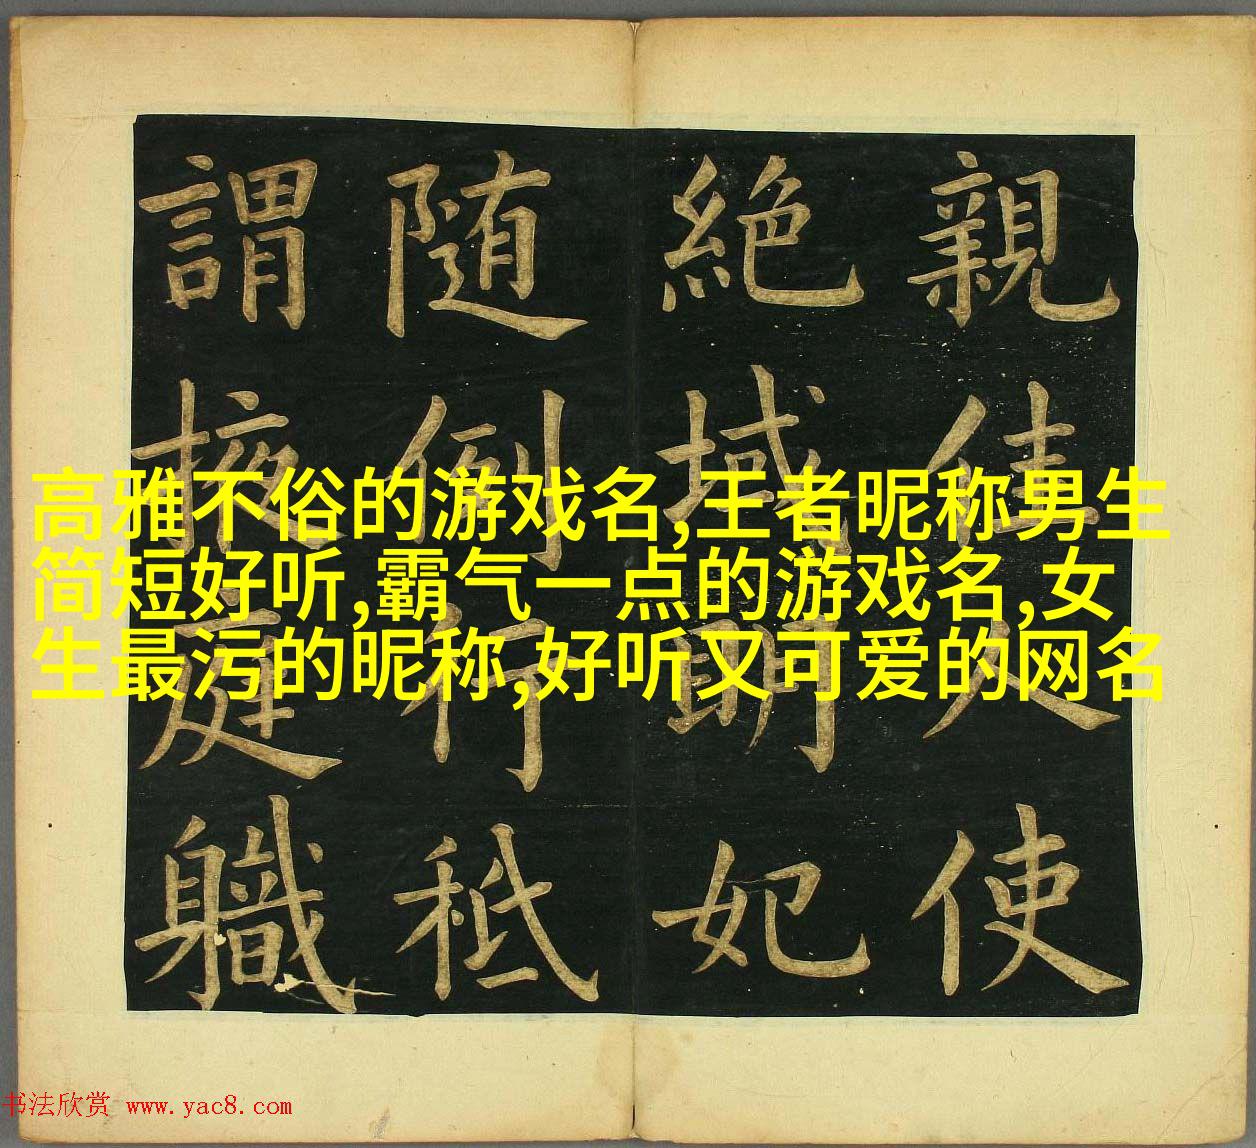 親佳人使
絶域明妃
随倒行秪
謂掖庭職
高雅不俗的游戏名,王者昵称男生
简短好听,霸气一点的游戏名,女
生最污的昵称,好听又可爱的网名
书法欣赏 www.yac8.com